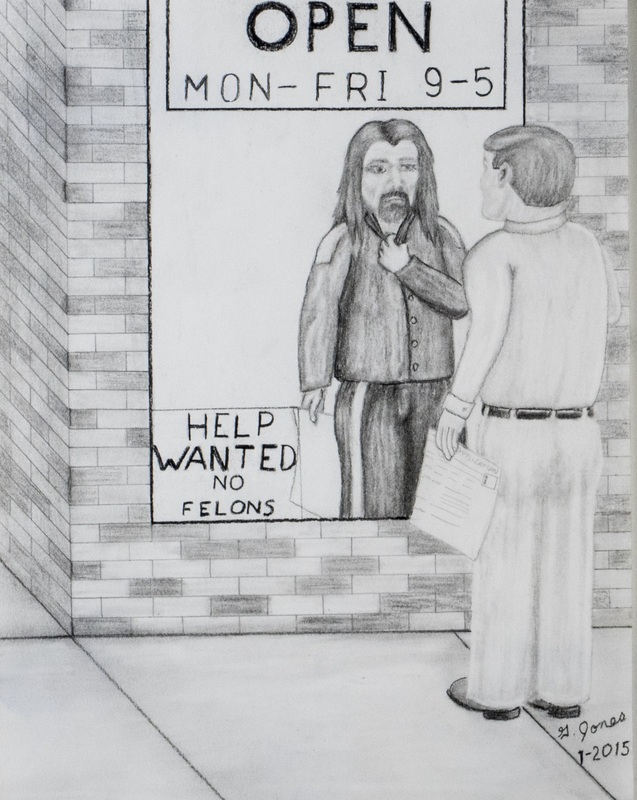 OPEN
MON-FRI 9-5
HELP
WANTED
NO
FELONS
G. Jones
1-2015